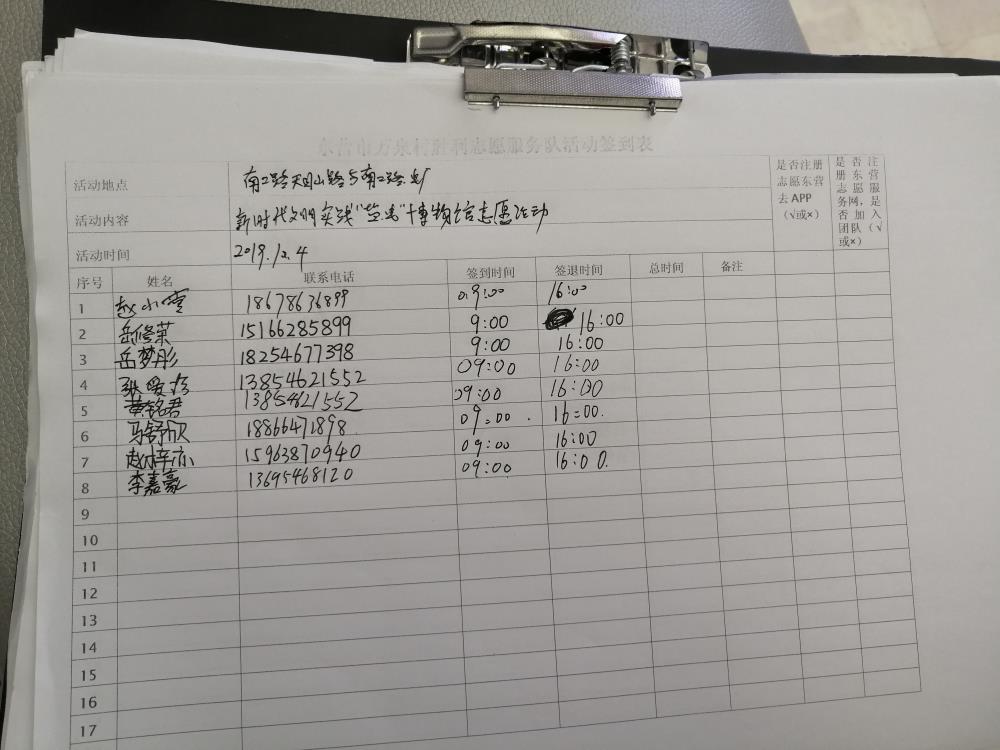 东营市万泉村胜利志愿服务队活动签到表
活动地点 南二路天目山路与南二路
是否注册志愿东营去APP（√或×）
是否注册东营志愿服务网，是否加入团队（√或×）
活动内容 新时代文明实践 博物馆志愿活动
活动时间 2019.12.4
序号 姓名 联系电话 签到时间 签退时间 总时间 备注
1 赵小雪 18678636899 09:00 16:00
2 岳修荣 15166285899 9:00 16:00
3 岳梦彤 18254677398 9:00 16:00
4 张 13854621552 09:00 16:00
5 黄铭君 13854621552 09:00 16:00
6 马舒欣 18866471898 09:00 16:00
7 赵梓亦 15963870940 09:00 16:00
8 李嘉豪 13695468120 09:00 16:00
9
10
11
12
13
14
15
16
17